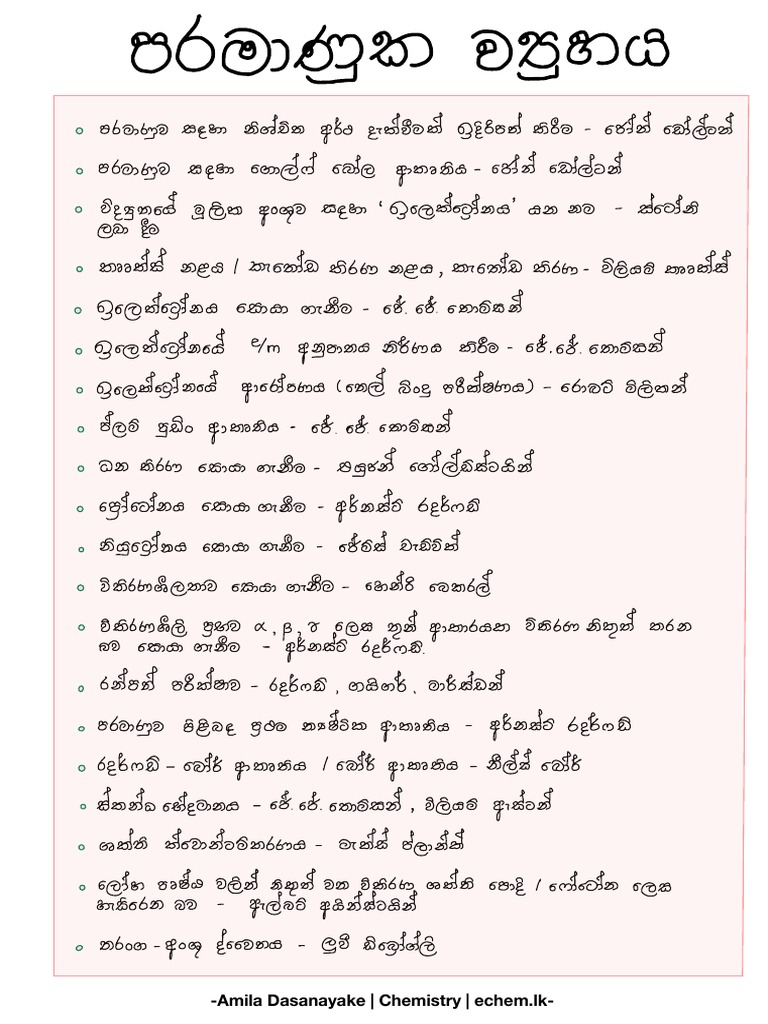 පරමාණුක ව්‍යුහය
පරමාණුව සඳහා නිශ්චිත අර්ථ දැක්වීමක් ඉදිරිපත් කිරීම - ජෝන් ඩෝල්ටන්
පරමාණුව සඳහා ගොල්ෆ් බෝල ආකෘතිය - ජෝන් ඩෝල්ටන්
විද්‍යුතයේ මූලික අංශුව සඳහා ‘ඉලෙක්ට්‍රෝනය’ යන නම - ස්ටෝනි
ලබා දීම
කෲක්ස් නළය / කැතෝඩ කිරණ නළය, කැතෝඩ කිරණ - විලියම් කෲක්ස්
ඉලෙක්ට්‍රෝනය සොයා ගැනීම - ජේ. ජේ. තොම්සන්
ඉලෙක්ට්‍රෝනයේ e/m අනුපාතය නිර්ණය කිරීම - ජේ.ජේ. තොම්සන්
ඉලෙක්ට්‍රෝනයේ ආරෝපණය (තෙල් බිංදු පරීක්ෂණය) - රොබට් මිලිකන්
ප්ලම් පුඩිං ආකෘතිය - ජේ. ජේ. තොම්සන්
ධන කිරණ සොයා ගැනීම - එයුජන් ගෝල්ඩ්ස්ටයින්
ප්‍රෝටෝනය සොයා ගැනීම - අර්නස්ට් රදර්ෆඩ්
නියුට්‍රෝනය සොයා ගැනීම - ජේම්ස් චැඩ්වික්
විකිරණශීලතාව සොයා ගැනීම - හෙන්රි බෙකරල්
විකිරණශීලී ප්‍රභව α, β, γ ලෙස තුන් ආකාරයක විකිරණ නිකුත් කරන
බව සොයා ගැනීම - අර්නස්ට් රදර්ෆඩ්.
රන්පත් පරීක්ෂාව - රදර්ෆඩ්, ගයිගර්, මාර්ස්ඩන්
පරමාණුව පිළිබඳ ප්‍රථම න්‍යෂ්ටික ආකෘතිය - අර්නස්ට් රදර්ෆඩ්
රදර්ෆඩ් - බෝර් ආකෘතිය / බෝර් ආකෘතිය - නීල්ස් බෝර්
ස්කන්ධ භේදමානය - ජේ.ජේ.තොම්සන්, විලියම් ඇස්ටන්
ශක්ති ක්වොන්ටම්කරණය - මැක්ස් ප්ලාන්ක්
ලෝහ පෘෂ්ඨ වලින් නිකුත් වන විකිරණ ශක්ති පොදි / ෆෝටෝන ලෙස
හැසිරෙන බව - ඇල්බට් අයින්ස්ටයින්
තරංග - අංශු ද්වෛතය - ලුවී ඩිබ්‍රෝග්ලි
-Amila Dasanayake | Chemistry | echem.lk-